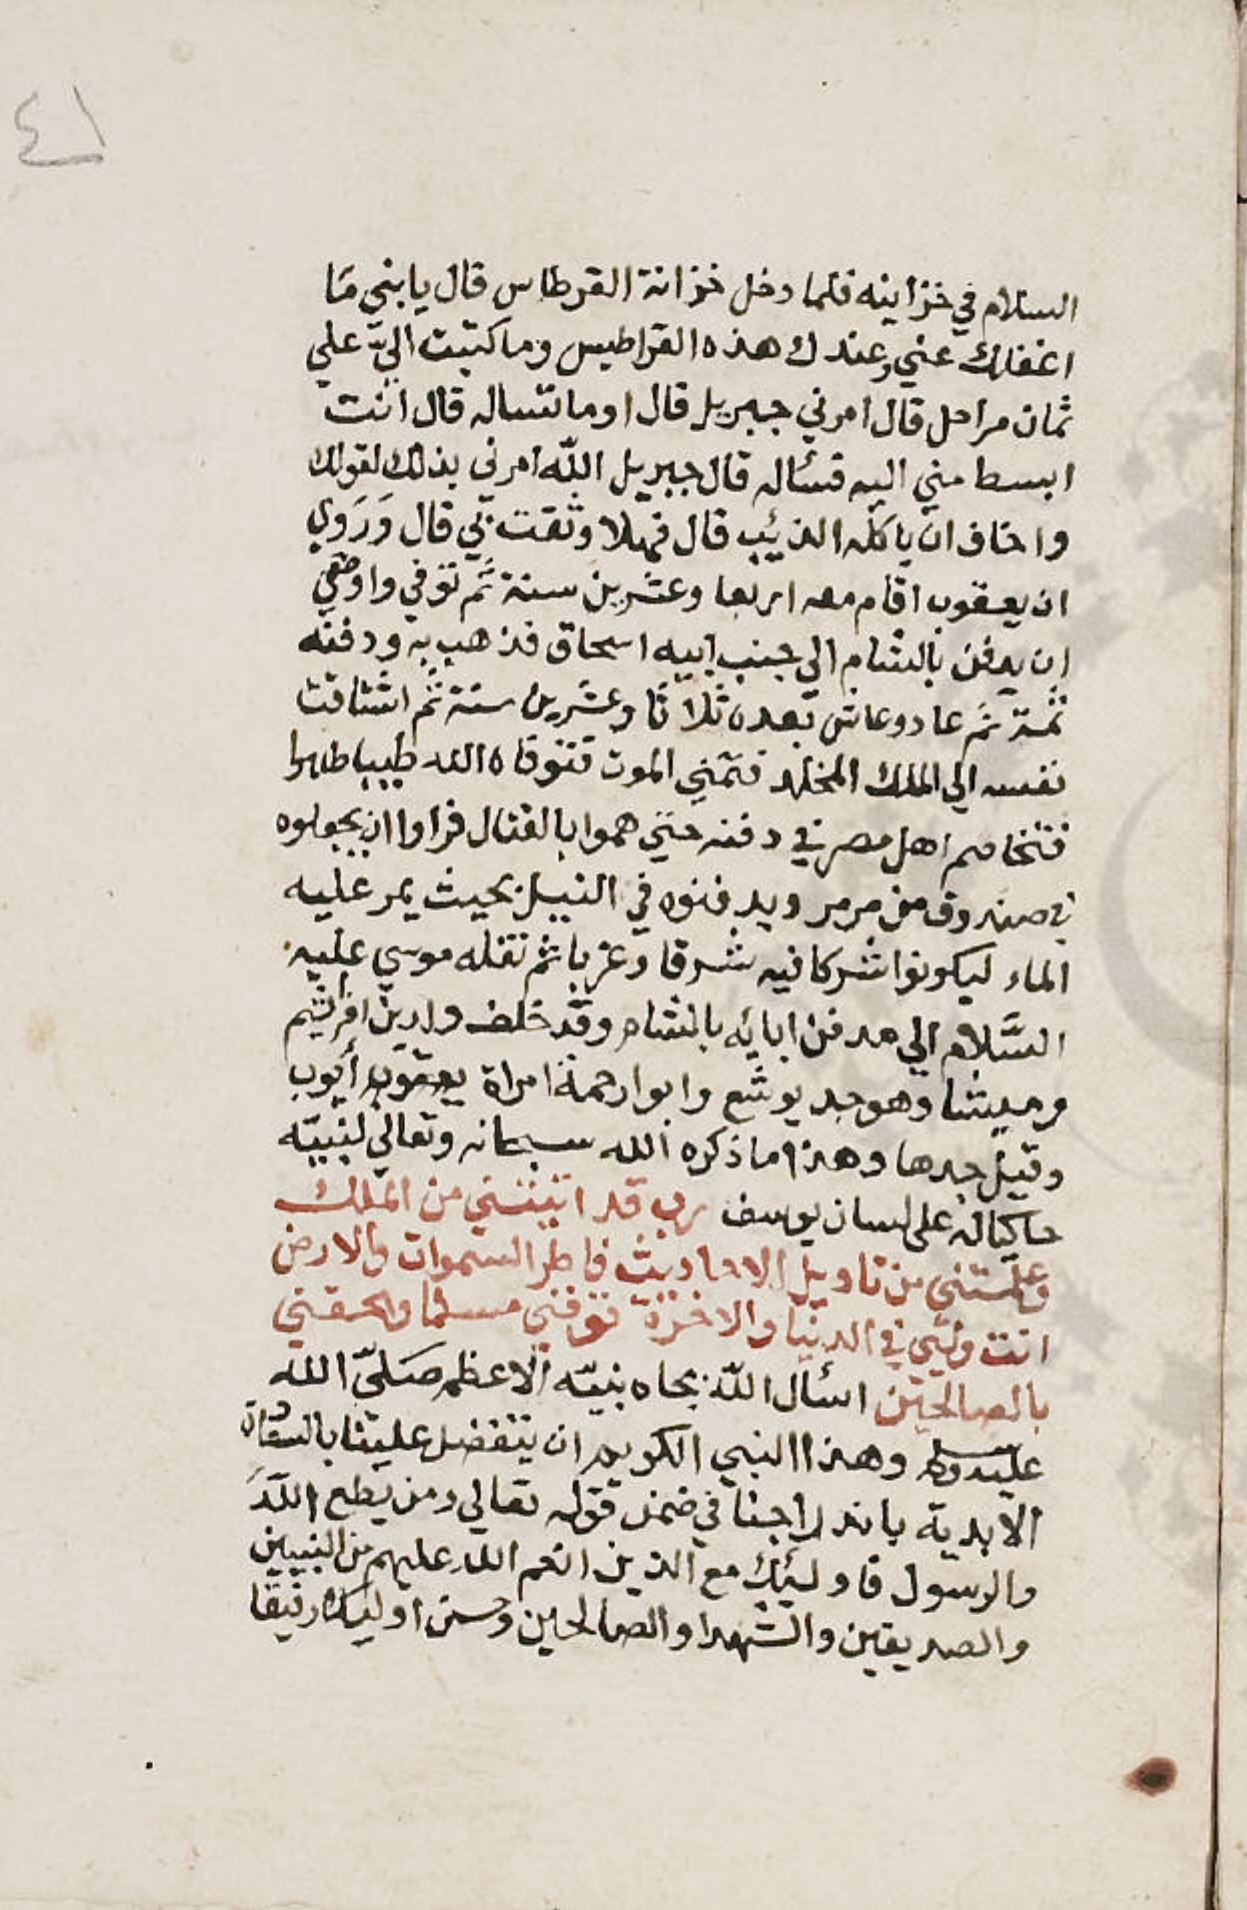 ٤١
السلام في خزاينه فلما دخل خزانة القرطاس قال يابني مَا
اغفلك عني وعندك هذه القراطيس وما كتبت اليّ علي
ثمان مراحل قال امرني جبريل قال اوما تساله قال انت
ابسط مني اليه فسأله قال جبريل اللّه امرني بذلك لقولك
واخاف ان ياكله الذيئب قال فهلا وثقت بي قال وَرَوي
ان يعقوب اقام معه اربعا وعشرين سنة ثم توفي واوصي
ان يدفن بالشام الي جنب ابيه اسحاق فذهب به ودفنه
ثمة ثم عاد وعاش بعده ثلاثا وعشرين سنة ثم اشتاقت
نفسه الي الملك المخلد فتمني الموت فتوفاه الله طيبا طاهرا
فتخاصم اهل مصر في دفنه حتي هموا بالقتال فراوا ان يجعلوه
في صندوق من مرمر ويدفنوه في النيل بحيث يمر عليه
الماء ليكونوا شركا فيه شرقا وغربا ثم نقله موسي عليه
السَّلام الي مدفن ابائه بالشام وقد خلف ولدين افراثيم
وميشا وهو جد يوشع وابوا رحمة امراة يعقوب أيوب
وقيل جدها وهذا ما ذكره الله سبحانه وتعالي لنبيّه
حاكيا له على لسان يوسف رب قد اتيتني من الملك
وعلّمتني من تاويل الاحاديث فاطر السموات والارض
انت وليّي في الدنيا والاخرة توفني مسلما والحقني
بالصالحين اسأل اللّه بجاه نبيّه الاعظم صَلّي الله
عليه وسلم وهذا النبي الكريم ان يتفضل علينا بالسعادة
الابدية باندراجنا في ضمن قوله تعالي ومن يطع اللّهَ
والرسول فاوليئك مع الذين انعم الله عليهم من النبيين
والصديقين والشهدا والصالحين وحسن اوليئك رفيقا